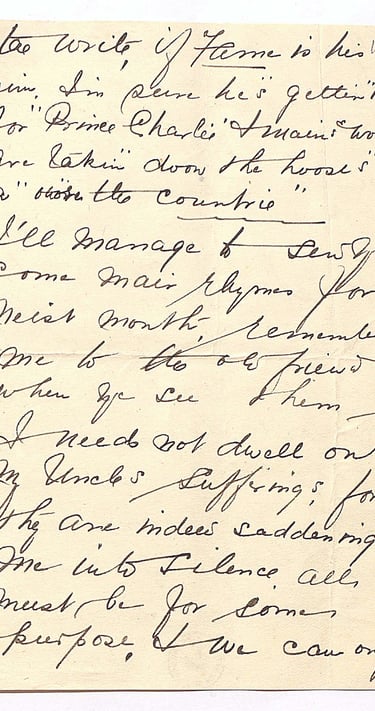 tae write, if Fame is his
aim, I'm sure he's gettin't
for "Prince Charlie" & mains wo
are takin" doon the hoose's
a" the countrie"
I'll manage to send
some mair rhymes for
neist month, remember
me to the old friend
when ye see them —
I needs not dwell on
my Uncles sufferings, for
they are indeed saddening
me into silence all
must be for some
purpose, & we can on